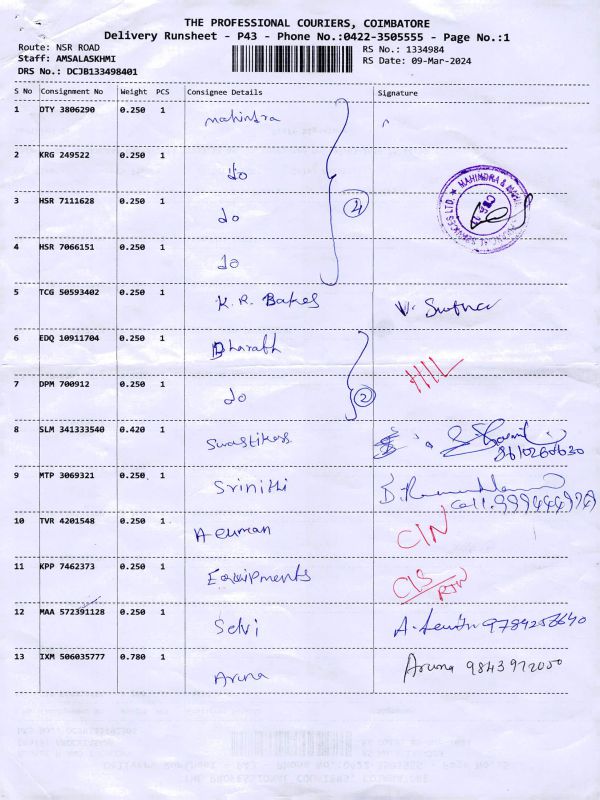 THE PROFESSIONAL COURIERS, COIMBATORE
Delivery Runsheet - P43 - Phone No.:0422-3505555 - Page No.:1
Route: NSR ROAD
Staff: AMSALASKHMI
DRS No.: DCJB133498401
RS No.: 1334984
RS Date: 09-Mar-2024
S No Consignment No Weight PCS Consignee Details Signature
1 DTY 3806290 0.250 1 mahindra
2 KRG 249522 0.250 1 do
3 HSR 7111628 0.250 1 do
4 HSR 7066151 0.250 1 do
4
MAHINDRA &
5 TCG 50593402 0.250 1 K.R. Bakes V.
6 EDQ 10911704 0.250 1 Bharath
7 DPM 700912 0.250 1 do
2
8 SLM 341333540 0.420 1 Swastikas
9 MTP 3069321 0.250 1 Srinithi
10 TVR 4201548 0.250 1 CIN
11 KPP 7462373 0.250 1 Equipments
12 MAA 572391128 0.250 1 Selvi
13 IXM 506035777 0.780 1 Aruna Aruna